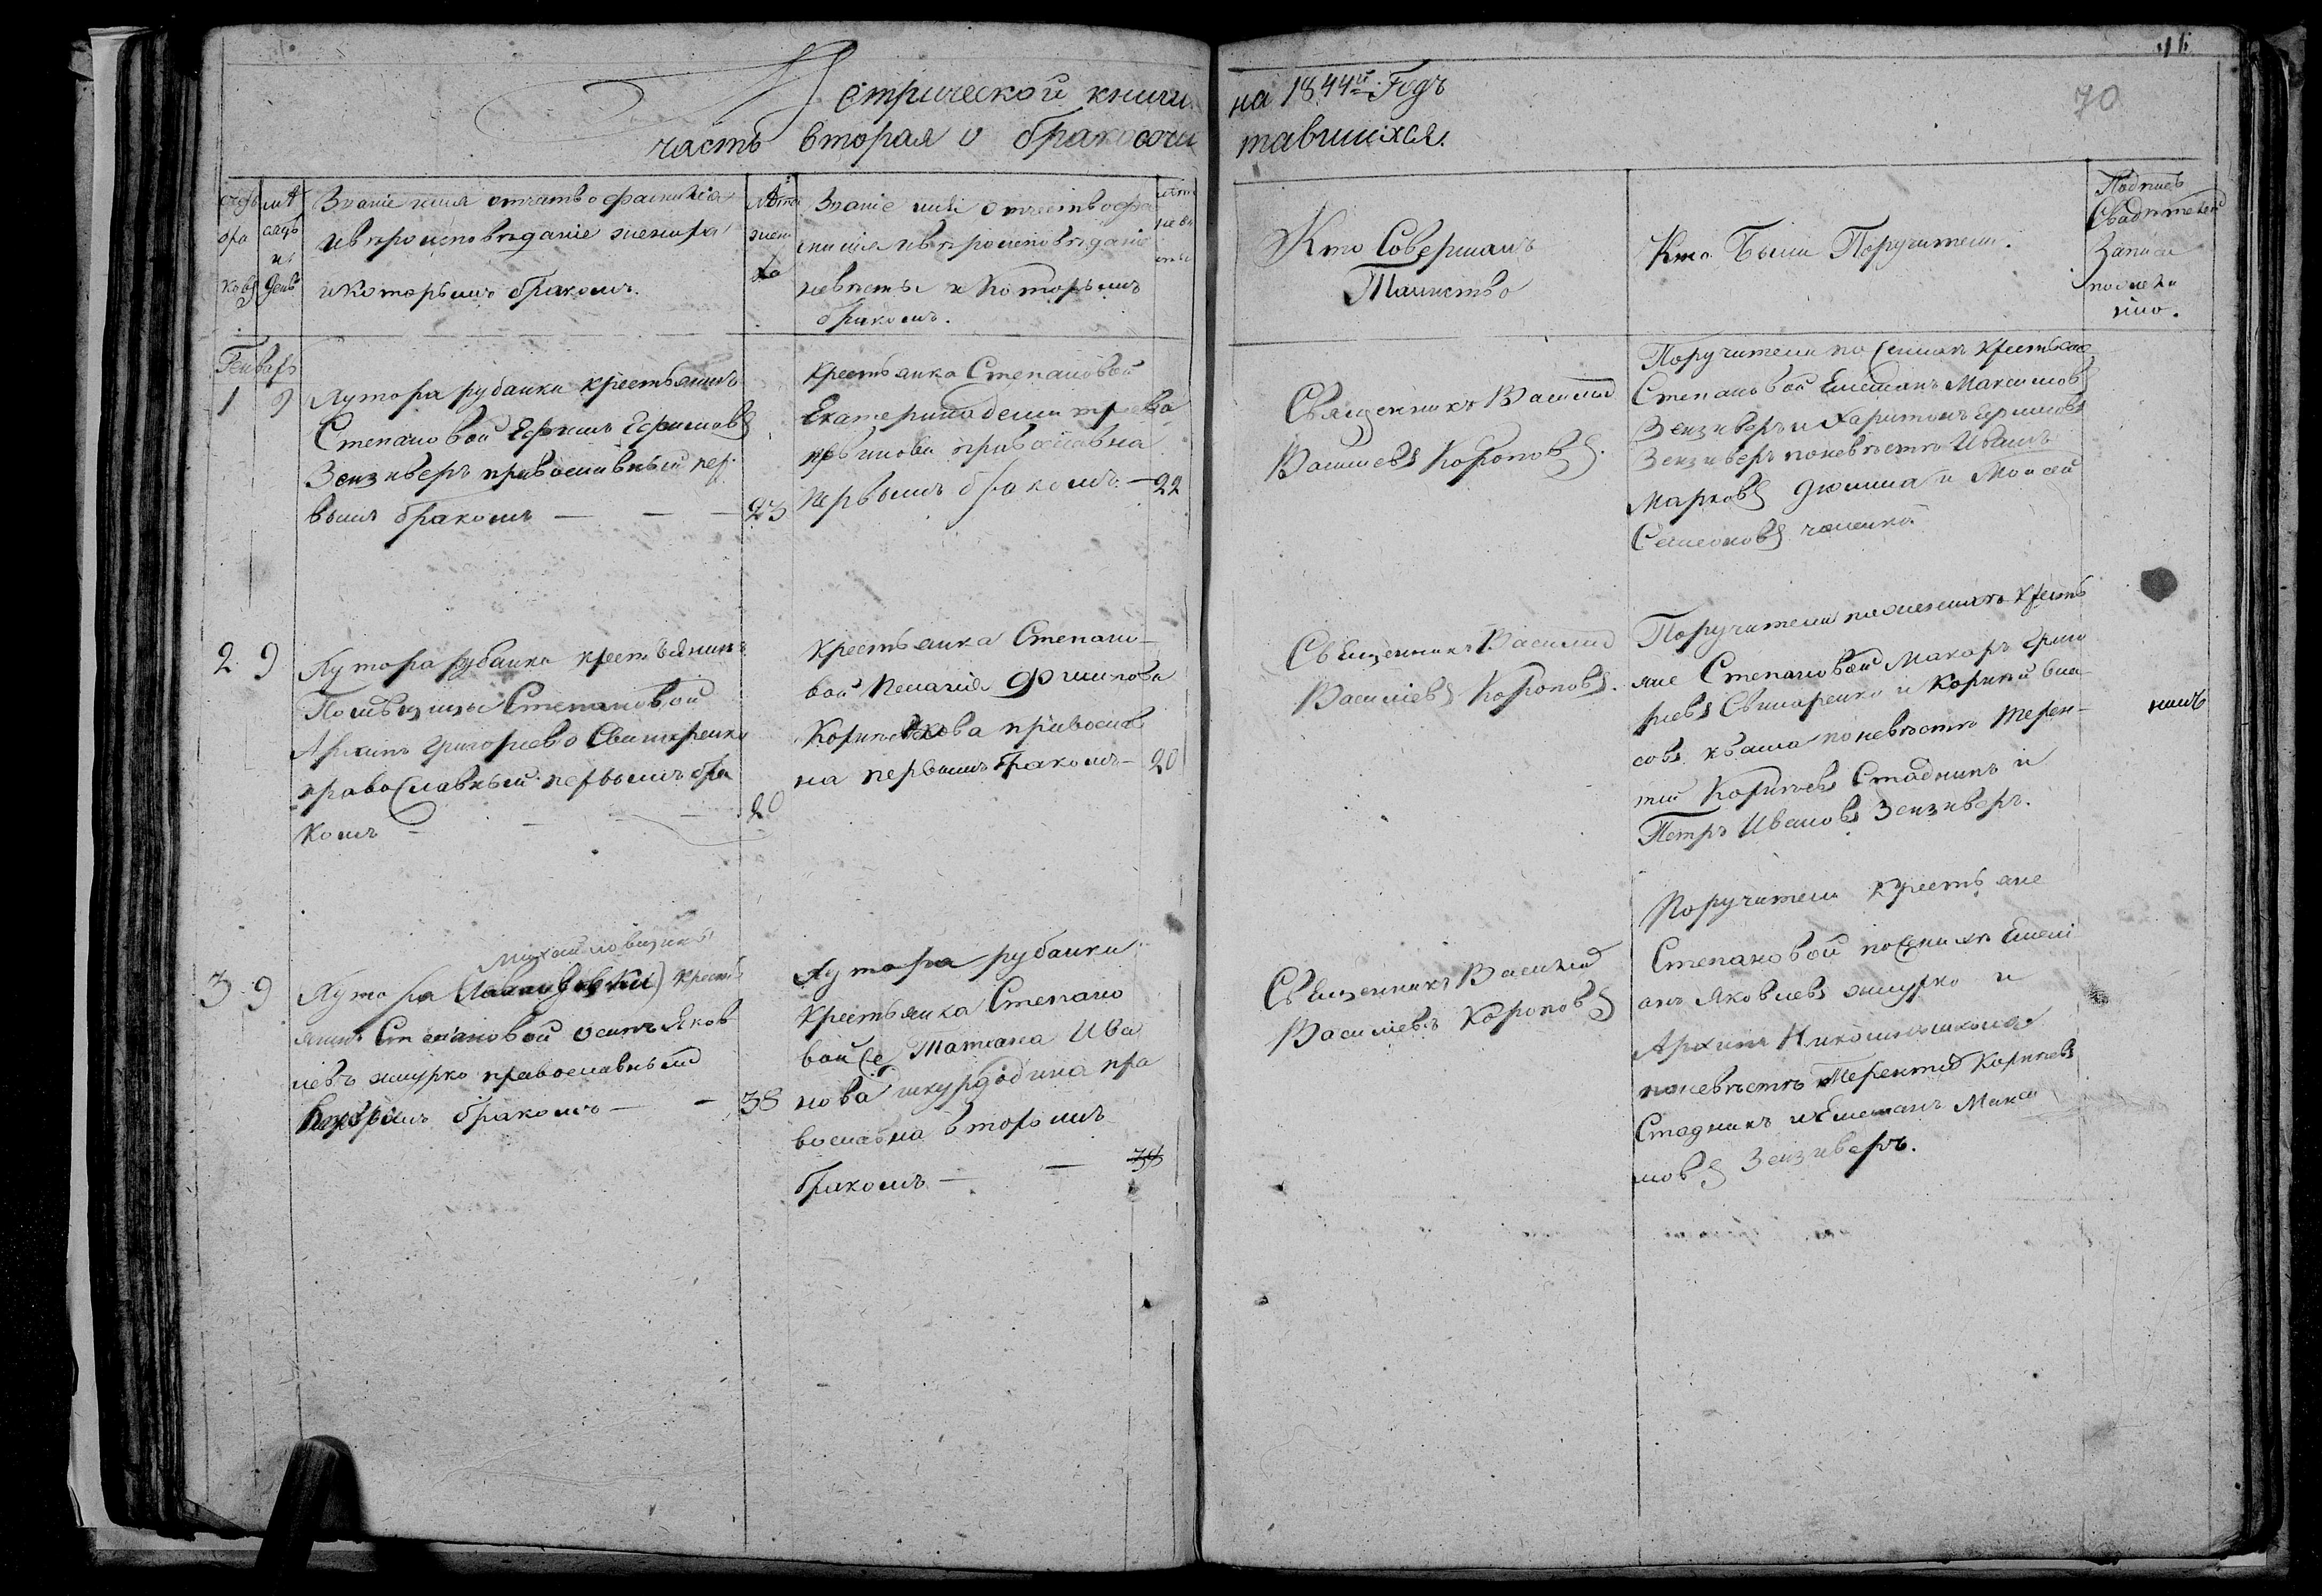 Метрической книги на 1844й Годъ
часть вторая о бракосоче тавшихся.
70
Званіе имя отчатво фамилія
и вероисповѣданіе жениха
и которымъ бракомъ.
Лѣта
жени
ха
Званіе имя отчество фа
милія и вѣроисповѣданіе
невѣсты и которымъ
бракомъ.
Кто Совершалъ
Таинство
Кто Были Поручители.
Подпись
Свидѣтелей
Записи
по
Генварь
1 9
Хутора рубанки крестьянинъ
Степановой Ефимъ Ефимовъ
Зензиверъ православный пер
вымъ бракомъ — — — 23
крестьянка Степановой
Екатерина
православна
первымъ бракомъ — 22
Священникъ Василий
Василіевъ Короповъ.
Поручители по женихѣ крестьяне
Степановой Емелианъ Максимовъ
Зензиверъ и Харитонъ Ефимовъ
Зензиверъ по невѣстѣ Иванъ
Марковъ и Моисей
Семеоновъ
2 9
Хутора рубанки крестьянинъ
Степановой
Архипъ Григориевъ Свинаренко
православный первымъ бра
комъ — — — 20
крестьянка Степано-
вой Пелагія Филипова
православ
на первымъ бракомъ — 20
Священникъ Василий
Василіевъ Короповъ.
Поручители по женихѣ кресть
яне Степановой Макаръ Григо
риевъ Свинаренко и Корнилий Вла-
совъ кваша по невѣстѣ Терен-
тий Корниевъ Стадникъ и
Петръ Ивановъ Зензиверъ.
3 9
Михайловщины
Хутора кресть
янинъ Степановой Осипъ Яков
левъ шмурко православный
вторымъ бракомъ — — 38
Хутора рубанки
крестьянка Степано
вой Татиана Ива
нова пра
вославна вторымъ
бракомъ — —
Священникъ Василий
Василіевъ Короповъ
Поручители крестьяне
Степановой по женихѣ Емели
анъ Яковлевъ шмурко и
Архипъ
по невѣстѣ Терентий Корниевъ
Стадникъ и Емелианъ Макси
мовъ Зензиверъ.